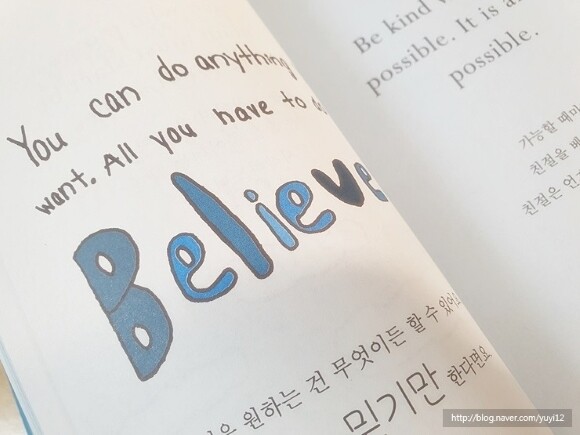 You can do anything
want. All you have to
Believe
원하는 건 무엇이든 할 수 있어요
믿기만 한다면요
Be kind
possible. It is
possible.
가능할 때마
친절을 베
친절은 언
http://blog.naver.com/yuyi12